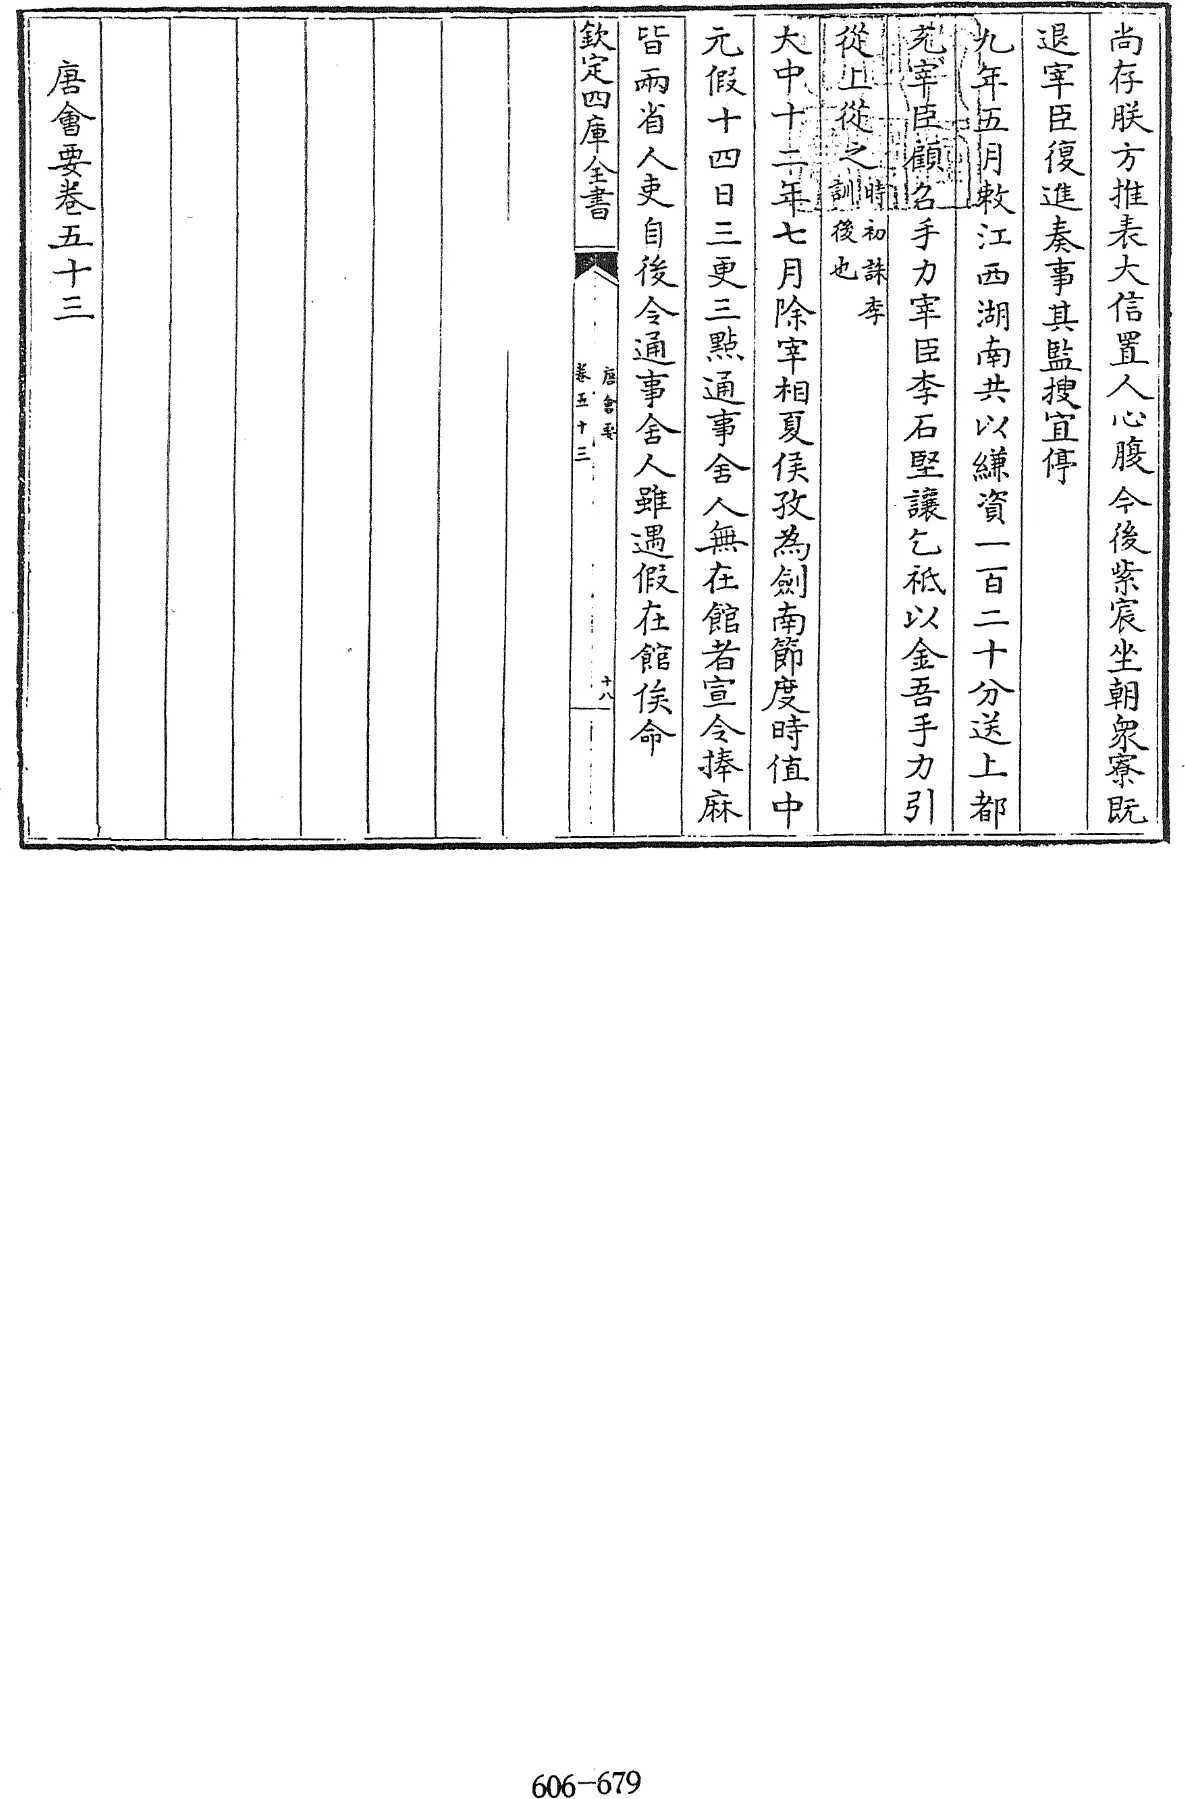 尚存朕方推表大信置人心腹今後紫宸坐朝衆寮既
退宰臣復進奏事其監搜宜停
九年五月敕江西湖南共以縑資一百二十分送上都
充宰臣顧召手力宰臣李石堅讓乞祗以金吾手力引
從上從之時初誅李
訓後也
大中十二年七月除宰相夏侯孜為劍南節度時值中
元假十四日三更三點通事舍人無在館者宣令捧麻
皆兩省人吏自後令通事舍人雖遇假在館俟命
欽定四庫全書
唐會要
卷五十三
十八
唐會要卷五十三
606-679